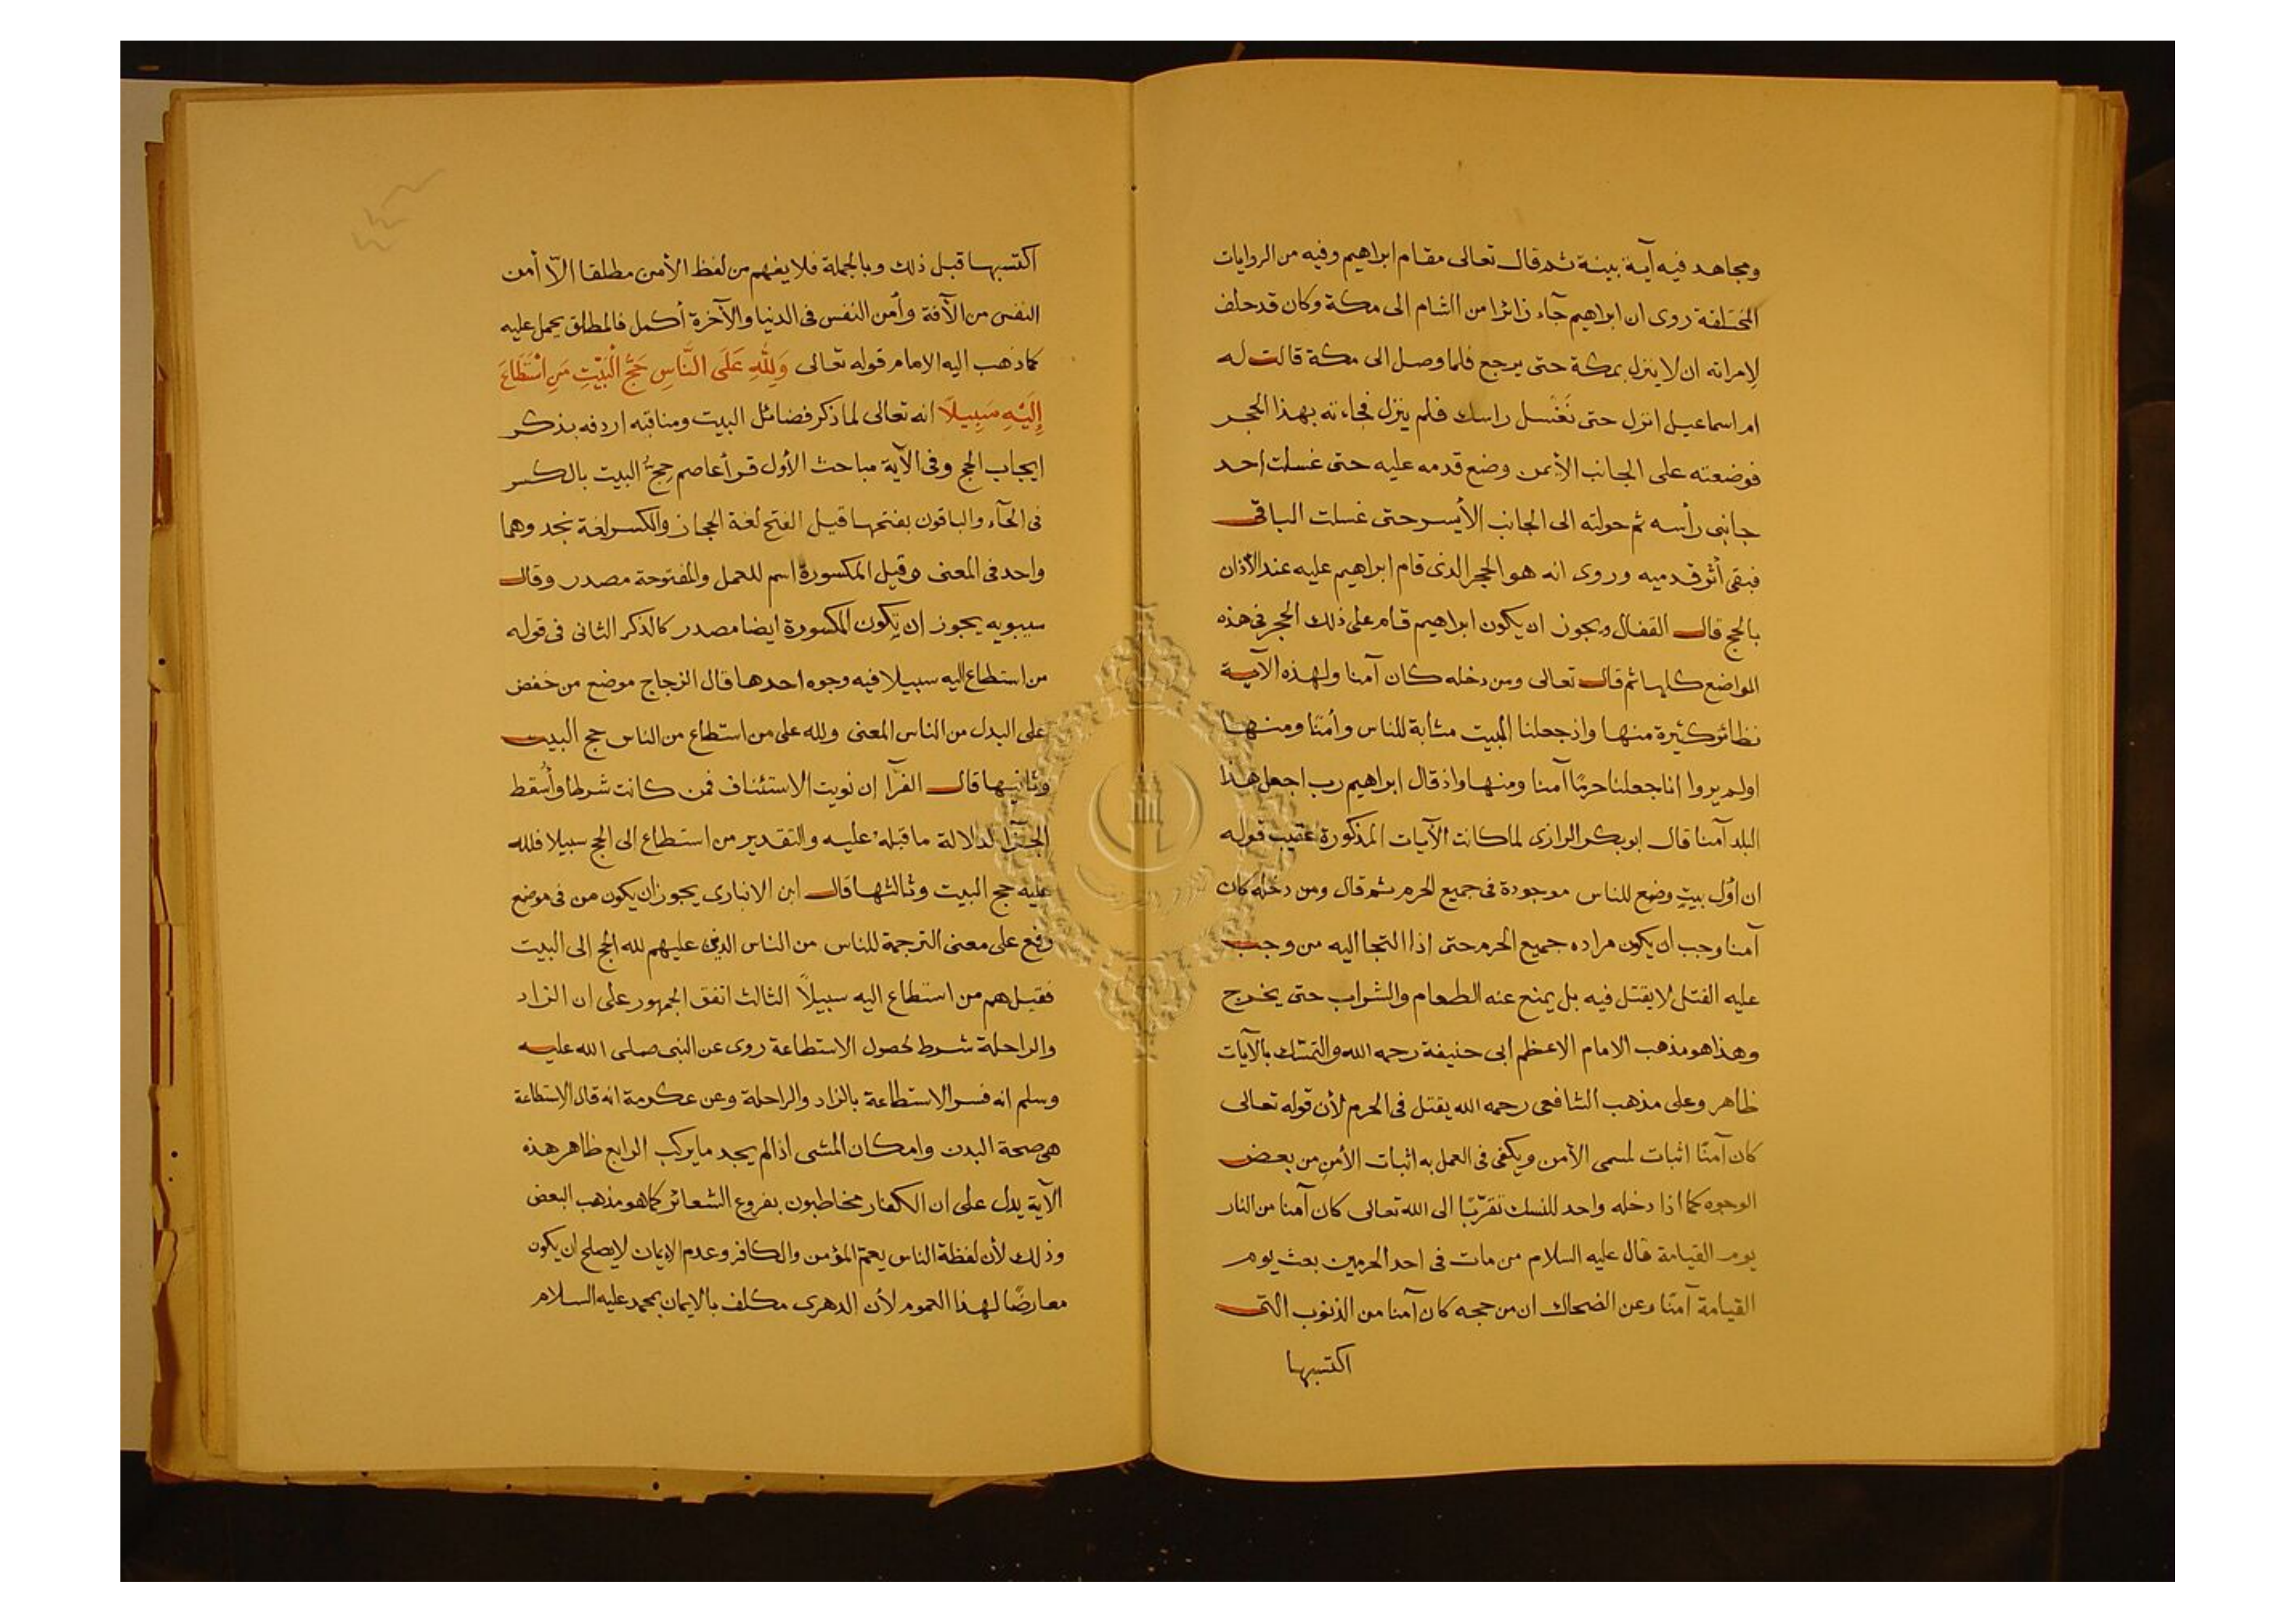 ومجاهد فيه آية بينة ثم قال تعالى مقام ابراهيم وفيه من الروايات
المختلفة روى ان ابراهيم جآء زائرا من الشام الى مكة وكان قد حلف
لامراته ان لا ينزل بمكة حتى يرجع فلما وصل الى مكة قالت له
ام اسماعيل انزل حتى نَغْسل راسك فلم ينزل فجاءته بهذا الحجر
فوضعته على الجانب الأيمن وضع قدمه عليه حتى غسلت احد
جانبى رأسه ثم حولته الى الجانب الأيسر حتى غسلت الباقى
فبقى أثر قدميه وروى انه هو الحجر الذى قام ابراهيم عليه عند الأذان
بالحج قال القفال ويجوز ان يكون ابراهيم قام على ذلك الحجر فى هذه
المواضع كلها ثم قال تعالى ومن دخله كان آمنا ولهذه الآية
نظائر كثيرة منها واذ جعلنا البيت مثابة للناس وأمنا ومنها
اولم يروا انا جعلنا حرمًا آمنا ومنها واذ قال ابراهيم رب اجعل هذا
البلد آمنا قال ابوبكر الرازى لما كانت الآيات المذكورة عقيب قوله
ان أوّل بيتٍ وضع للناس موجودة فى جميع الحرم ثم قال ومن دخله كان
آمنا وجب ان يكون مراده جميع الحرم حتى اذا التجا اليه من وجب
عليه القتل لا يقتل فيه بل يمنع عنه الطعام والشراب حتى يخرج
وهذا هو مذهب الامام الاعظم ابى حنيفة رحمه الله والتمسّك بالآيات
ظاهر وعلى مذهب الشافعى رحمه الله يقتل فى الحرم لأن قوله تعالى
كان آمنًا اثبات لمسمى الأمن ويكفى فى العمل به اثبات الأمن من بعض
الوجوه كما اذا دخله واحد للنسك تقرّبًا الى الله تعالى كان آمنا من النار
يوم القيامة قال عليه السلام من مات فى احد الحرمين بعث يوم
القيامة آمنًا وعن الضحاك ان من حجه كان آمنا من الذنوب التى
اكتسبها
اكتسبها قبل ذلك وبالجملة فلا يفهم من لفظ الأمن مطلقا الّا أمن
النفس من الآفة وأمن النفس فى الدنيا والآخرة أكمل فالمطلق يحمل عليه
كما ذهب اليه الامام قوله تعالى وَلِلّٰهِ عَلَى النَّاسِ حَجُّ الْبَيْتِ مَنِ اسْتَطَاعَ
إِلَيْهِ سَبِيلًا انه تعالى لما ذكر فضائل البيت ومناقبه اردفه بذكر
ايجاب الحج وفى الآية مباحث الأول قرأ عاصم حِجّ البيت بالكسر
فى الحآء والباقون بفتحها قيل الفتح لغة الحجاز والكسر لغة نجد وهما
واحد فى المعنى وقيل المكسورة اسم للعمل والمفتوحة مصدر وقال
سيبويه يجوز ان يكون المكسورة ايضا مصدر كالذكر الثانى فى قوله
من استطاع اليه سبيلا فيه وجوه احدها قال الزجاج موضع من خفض
على البدل من الناس المعنى ولله على من استطاع من الناس حج البيت
وثانيها قال الفرّآ ان نويت الاستئناف فمن كانت شرطا وأسقط
الجزآ لدلالة ما قبله عليه والتقدير من استطاع الى الحج سبيلا فلله
عليه حج البيت وثالثها قال ابن الانبارى يجوز ان يكون من فى موضع
رفع على معنى الترجمة للناس من الناس الذين عليهم لله الحج الى البيت
فقيل هم من استطاع اليه سبيلًا الثالث اتفق الجمهور على ان الزاد
والراحلة شرط لحصول الاستطاعة روى عن النبى صلى الله عليه
وسلم انه فسر الاستطاعة بالزاد والراحلة وعن عكرمة انه قال الاستطاعة
هى صحة البدن وامكان المشى اذا لم يجد ما يركب الرابع ظاهر هذه
الآية يدل على ان الكفار مخاطبون بفروع الشعائر كما هو مذهب البعض
وذلك لأن لفظة الناس يعمّ المؤمن والكافر وعدم الايمان لا يصلح ان يكون
معارضًا لهذا العموم لأن الدهرى مكلف بالايمان بمحمد عليه السلام